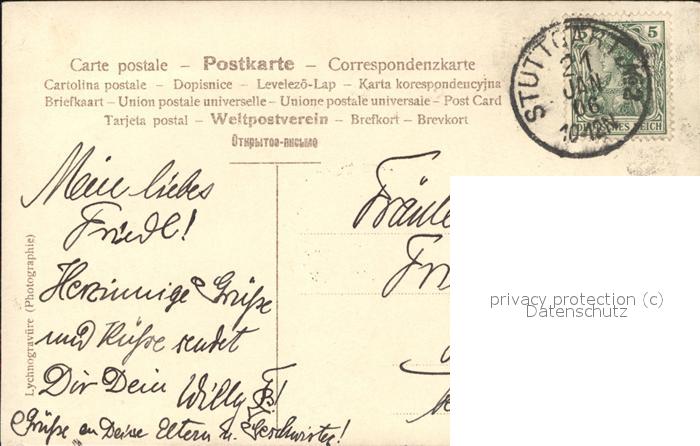 Carte postale – Postkarte – Correspondenzkarte
Cartolina postale – Dopisnice – Levelező-Lap – Karta korespondencyjna
Briefkaart – Union postale universelle – Unione postale universale – Post Card
Tarjeta postal – Weltpostverein – Brefkort – Brevkort
Открытое-письмо
5
STUTTGART
21
JAN
06
10-12N
DEUTSCHES REICH
Mein liebes
Friedl!
Herzinnige Grüße
und Küsse sendet
Dir Dein Willy
Grüße an Deine Eltern u. Geschwister!
Fräule
Fri
Lychnogravüre (Photographie)
privacy protection (c)
Datenschutz